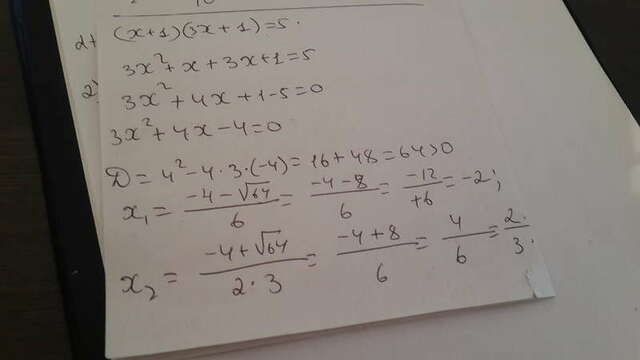 (x+1)(3x+1)=5.
3x²+x+3x+1=5
3x²+4x+1-5=0
3x²+4x-4=0
D=4²-4·3·(-4)=16+48=64>0
x₁=(-4-√64)/6=(-4-8)/6=(-12)/(+6)=-2;
x₂=(-4+√64)/(2·3)=(-4+8)/6=4/6=2/3.